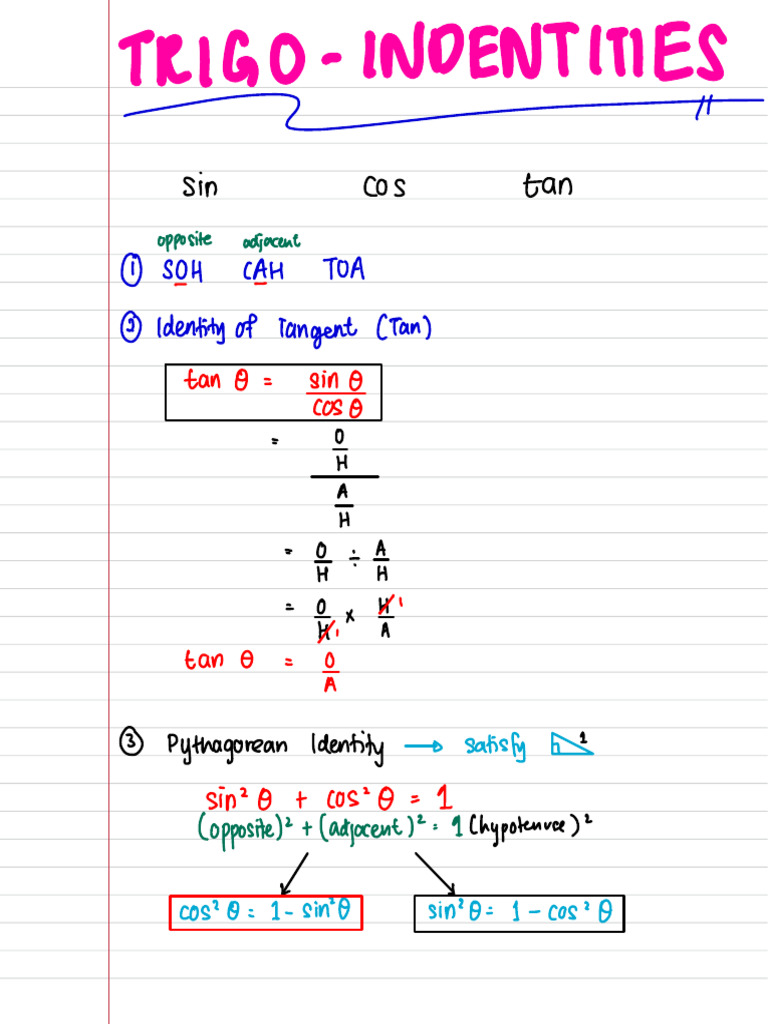 TRIGO - INDENTITIES
sin cos tan
opposite adjacent
① SOH CAH TOA
② Identity of Tangent (Tan)
tan θ = sin θ / cos θ
= O/H / A/H
= O/H ÷ A/H
= O/H 1 × H/A 1
tan θ = O/A
③ Pythagorean Identity → satisfy 1
sin² θ + cos² θ = 1
(opposite)² + (adjacent)² = 1 (hypotenuse)²
cos² θ = 1 - sin² θ sin² θ = 1 - cos² θ